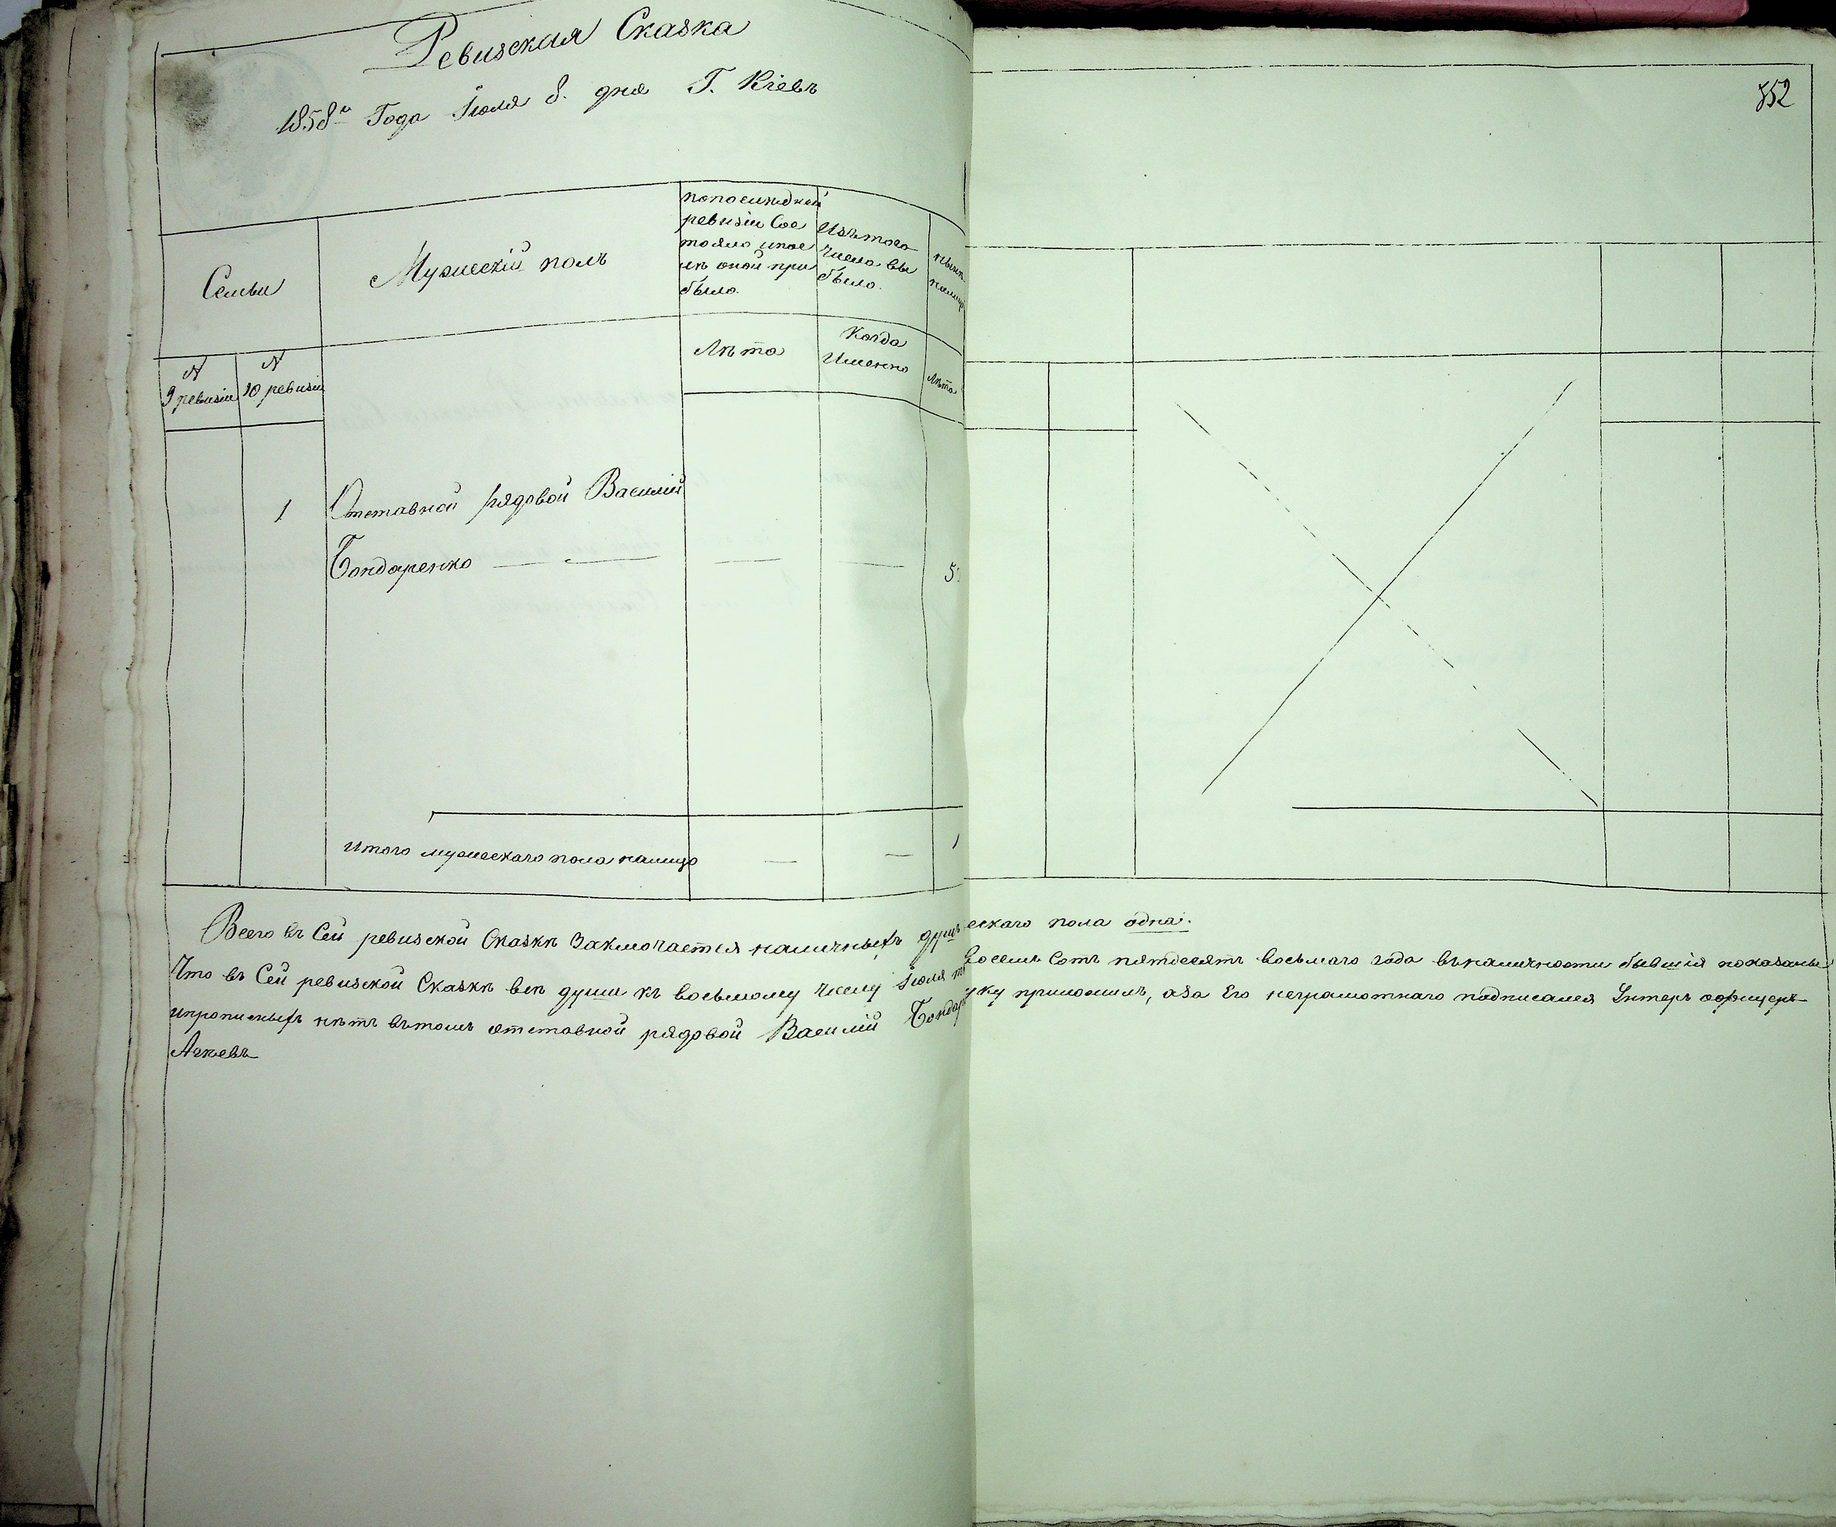 Ревизская Сказка
1858го Года Іюля 8. дня Г. Кіевъ
352
Семьи
Мужескій полъ
попоследней
ревизіи Сос
тояло ипос
лѣ оной при
было.
Изътого
числа вы
было.
Лѣта
Когда
Именно
Лѣта
N
9 ревизіи
N
10 ревизіи
1
Отставной рядовой Василій
Бондаренко
Итого мужескаго пола налицо — — 1
Всего въ Сей ревизской Сказкѣ Заключается наличныхъ душъ ескаго пола одна.
Что въ Сей ревизской Сказкѣ всѣ души къ восьмому числу Іюля восемь Сотъ пятдесятъ восьмаго года вналичности бывшія показаны
ипрописныхъ нѣтъ вътомъ отставной рядовой Василій Бондар уку приложилъ, аза Его неграмотнаго подписался Унтеръ офицеръ